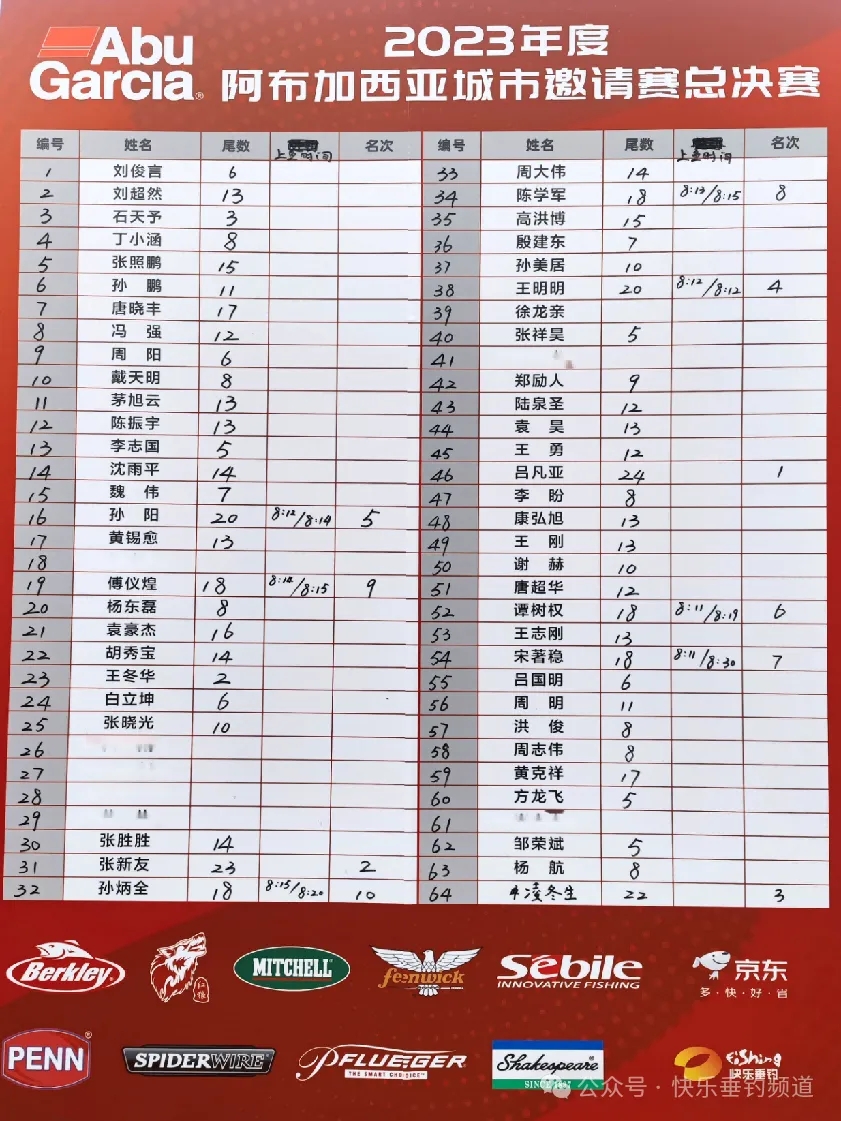 Abu
Garcia®
2023年度
阿布加西亚城市邀请赛总决赛
编号 姓名 尾数 上鱼时间 名次
1 刘俊言 6
2 刘超然 13
3 石天予 3
4 丁小涵 8
5 张照鹏 15
6 孙鹏 11
7 唐晓丰 17
8 冯强 12
9 周阳 6
10 戴天明 8
11 茅旭云 13
12 陈振宇 13
13 李志国 5
14 沈雨平 14
15 魏伟 7
16 孙阳 20 8:12/8:14 5
17 黄锡愈 13
18
19 傅仪煌 18 8:14/8:15 9
20 杨东磊 8
21 袁豪杰 16
22 胡秀宝 14
23 王冬华 2
24 白立坤 6
25 张晓光 10
26
27
28
29
30 张胜胜 14
31 张新友 23 2
32 孙炳全 18 8:15/8:20 10
编号 姓名 尾数 上鱼时间 名次
33 周大伟 14
34 陈学军 18 8:13/8:15 8
35 高洪博 15
36 殷建东 7
37 孙美居 10
38 王明明 20 8:12/8:12 4
39 徐龙亲
40 张祥昊 5
41
42 郑励人 9
43 陆泉圣 12
44 袁昊 13
45 王勇 12
46 吕凡亚 24 1
47 李盼 8
48 康弘旭 13
49 王刚 13
50 谢赫 10
51 唐超华 12
52 谭树权 18 8:11/8:19 6
53 王志刚 13
54 宋著稳 18 8:11/8:30 7
55 吕国明 6
56 周明 11
57 洪俊 8
58 周志伟 8
59 黄克祥 17
60 方龙飞 5
61
62 邹荣斌 5
63 杨航 8
64 凌冬生 22 3
Berkley
MITCHELL
fenwick
Sébile
INNOVATIVE FISHING
京东
多·快·好·省
PENN
SPIDERWIRE
PFLUEGER
THE SMART CHOICE
Shakespeare
SINCE 1897
FiShing
快乐垂钓
公众号·快乐垂钓频道